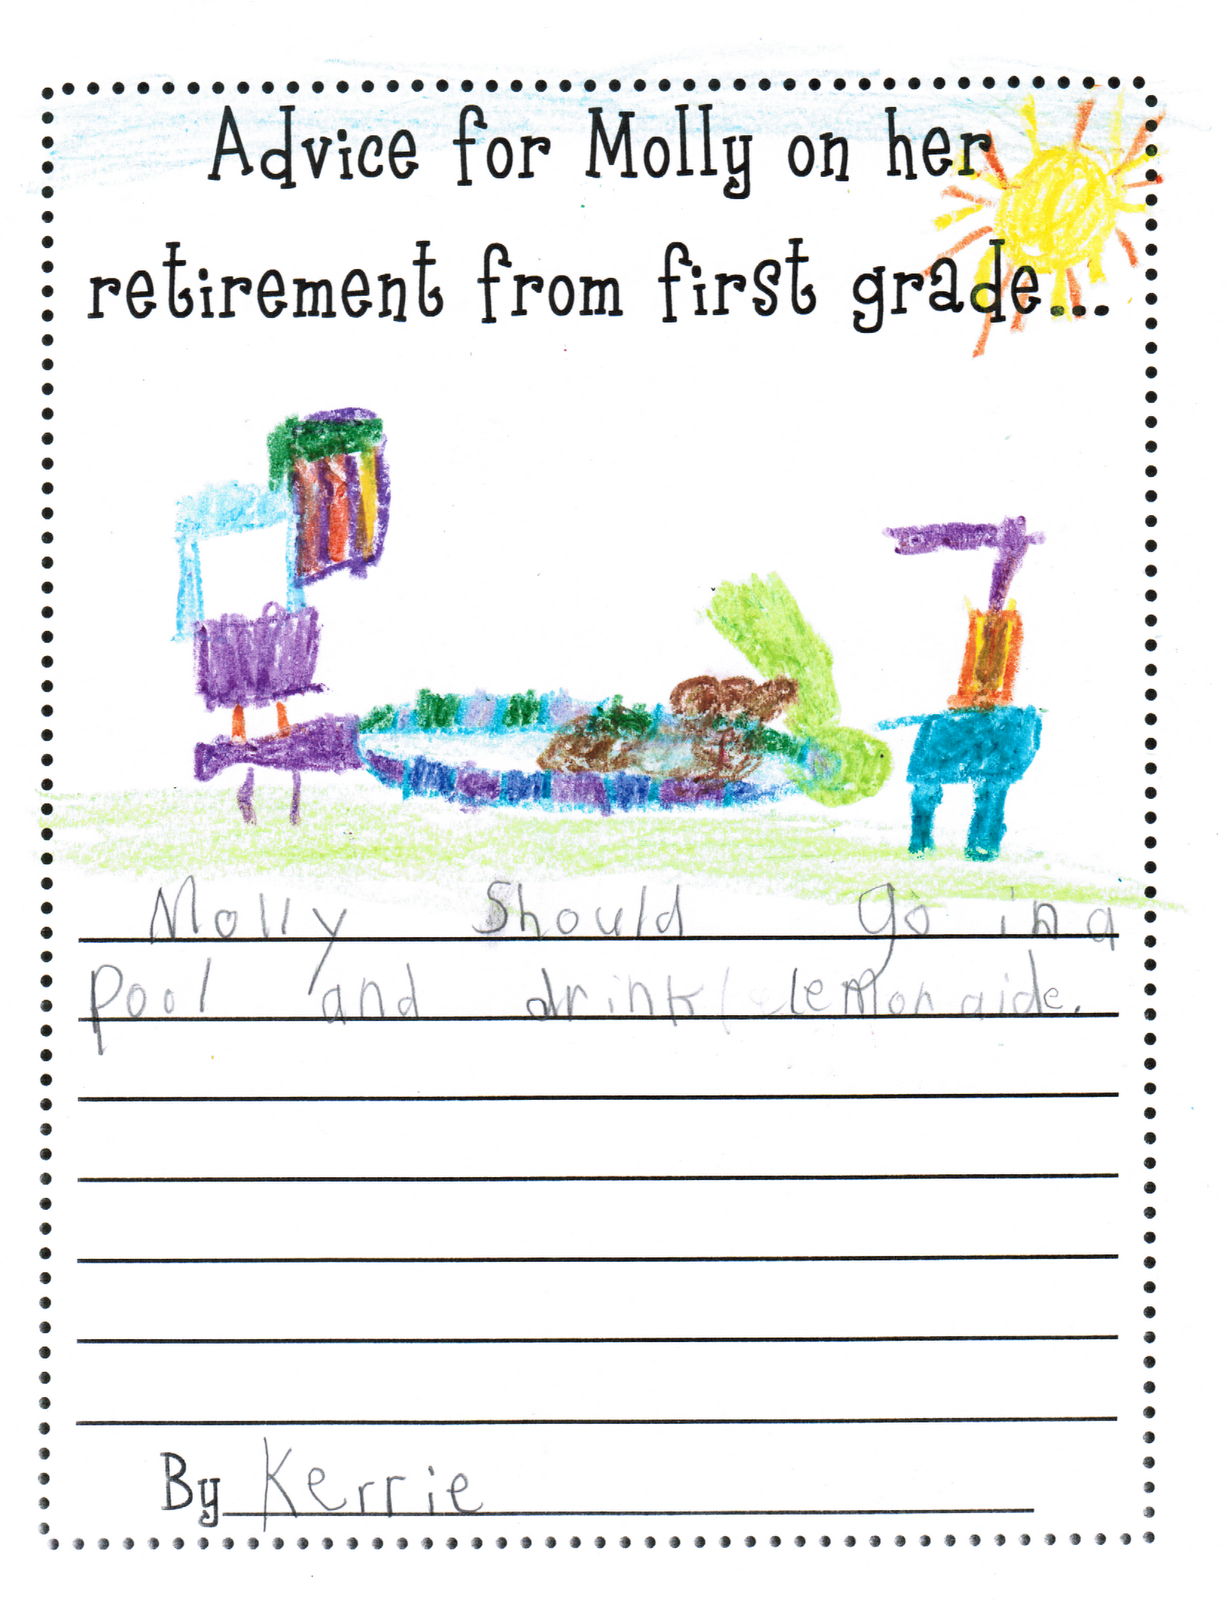 Advice for Molly on her
retirement from first grade...
Molly Should go in a
pool and drink lemonaide.
By Kerrie